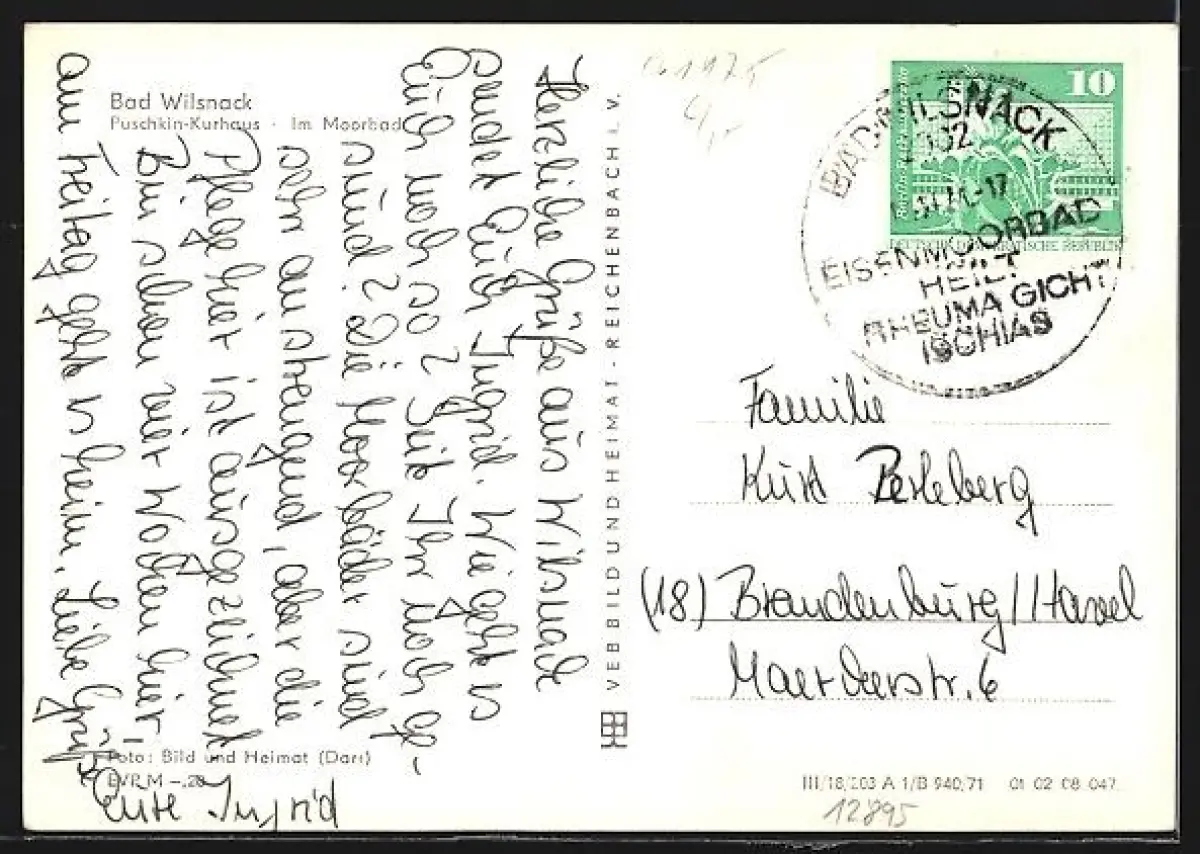 Bad Wilsnack
Puschkin-Kurhaus · Im Moorbad
Herzliche Grüße aus Wilsnack
sendet Euch Ingrid. Wie geht's
Euch noch so? Seit Ihr noch ge-
sund? Die Moorbäder sind
sehr anstrengend, aber die
Pflege hier ist ausgezeichnet
Bin schon vier Wochen hier,
am Freitag geht's heim. Liebe Grüße
Eure Ingrid
Foto: Bild und Heimat (Darr)
EVP M -.20
VEB BILD UND HEIMAT - REICHENBACH I. V.
1975
4,-
10
DEUTSCHE DEMOKRATISCHE REPUBLIK
BAD WILSNACK
-17
EISENMOORBAD
HEILT
RHEUMA GICHT
ISCHIAS
Familie
Kurt Perleberg
(18) Brandenburg/Havel
Maerckerstr. 6
III/18/203 A 1/B 940/71 01 02 08 047
12895